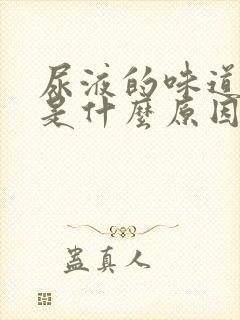 尿液的味道
是什麼原因
蠱真人